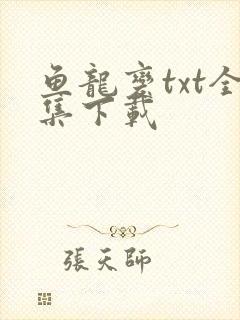 鱼龍變txt全
集下載
張天師